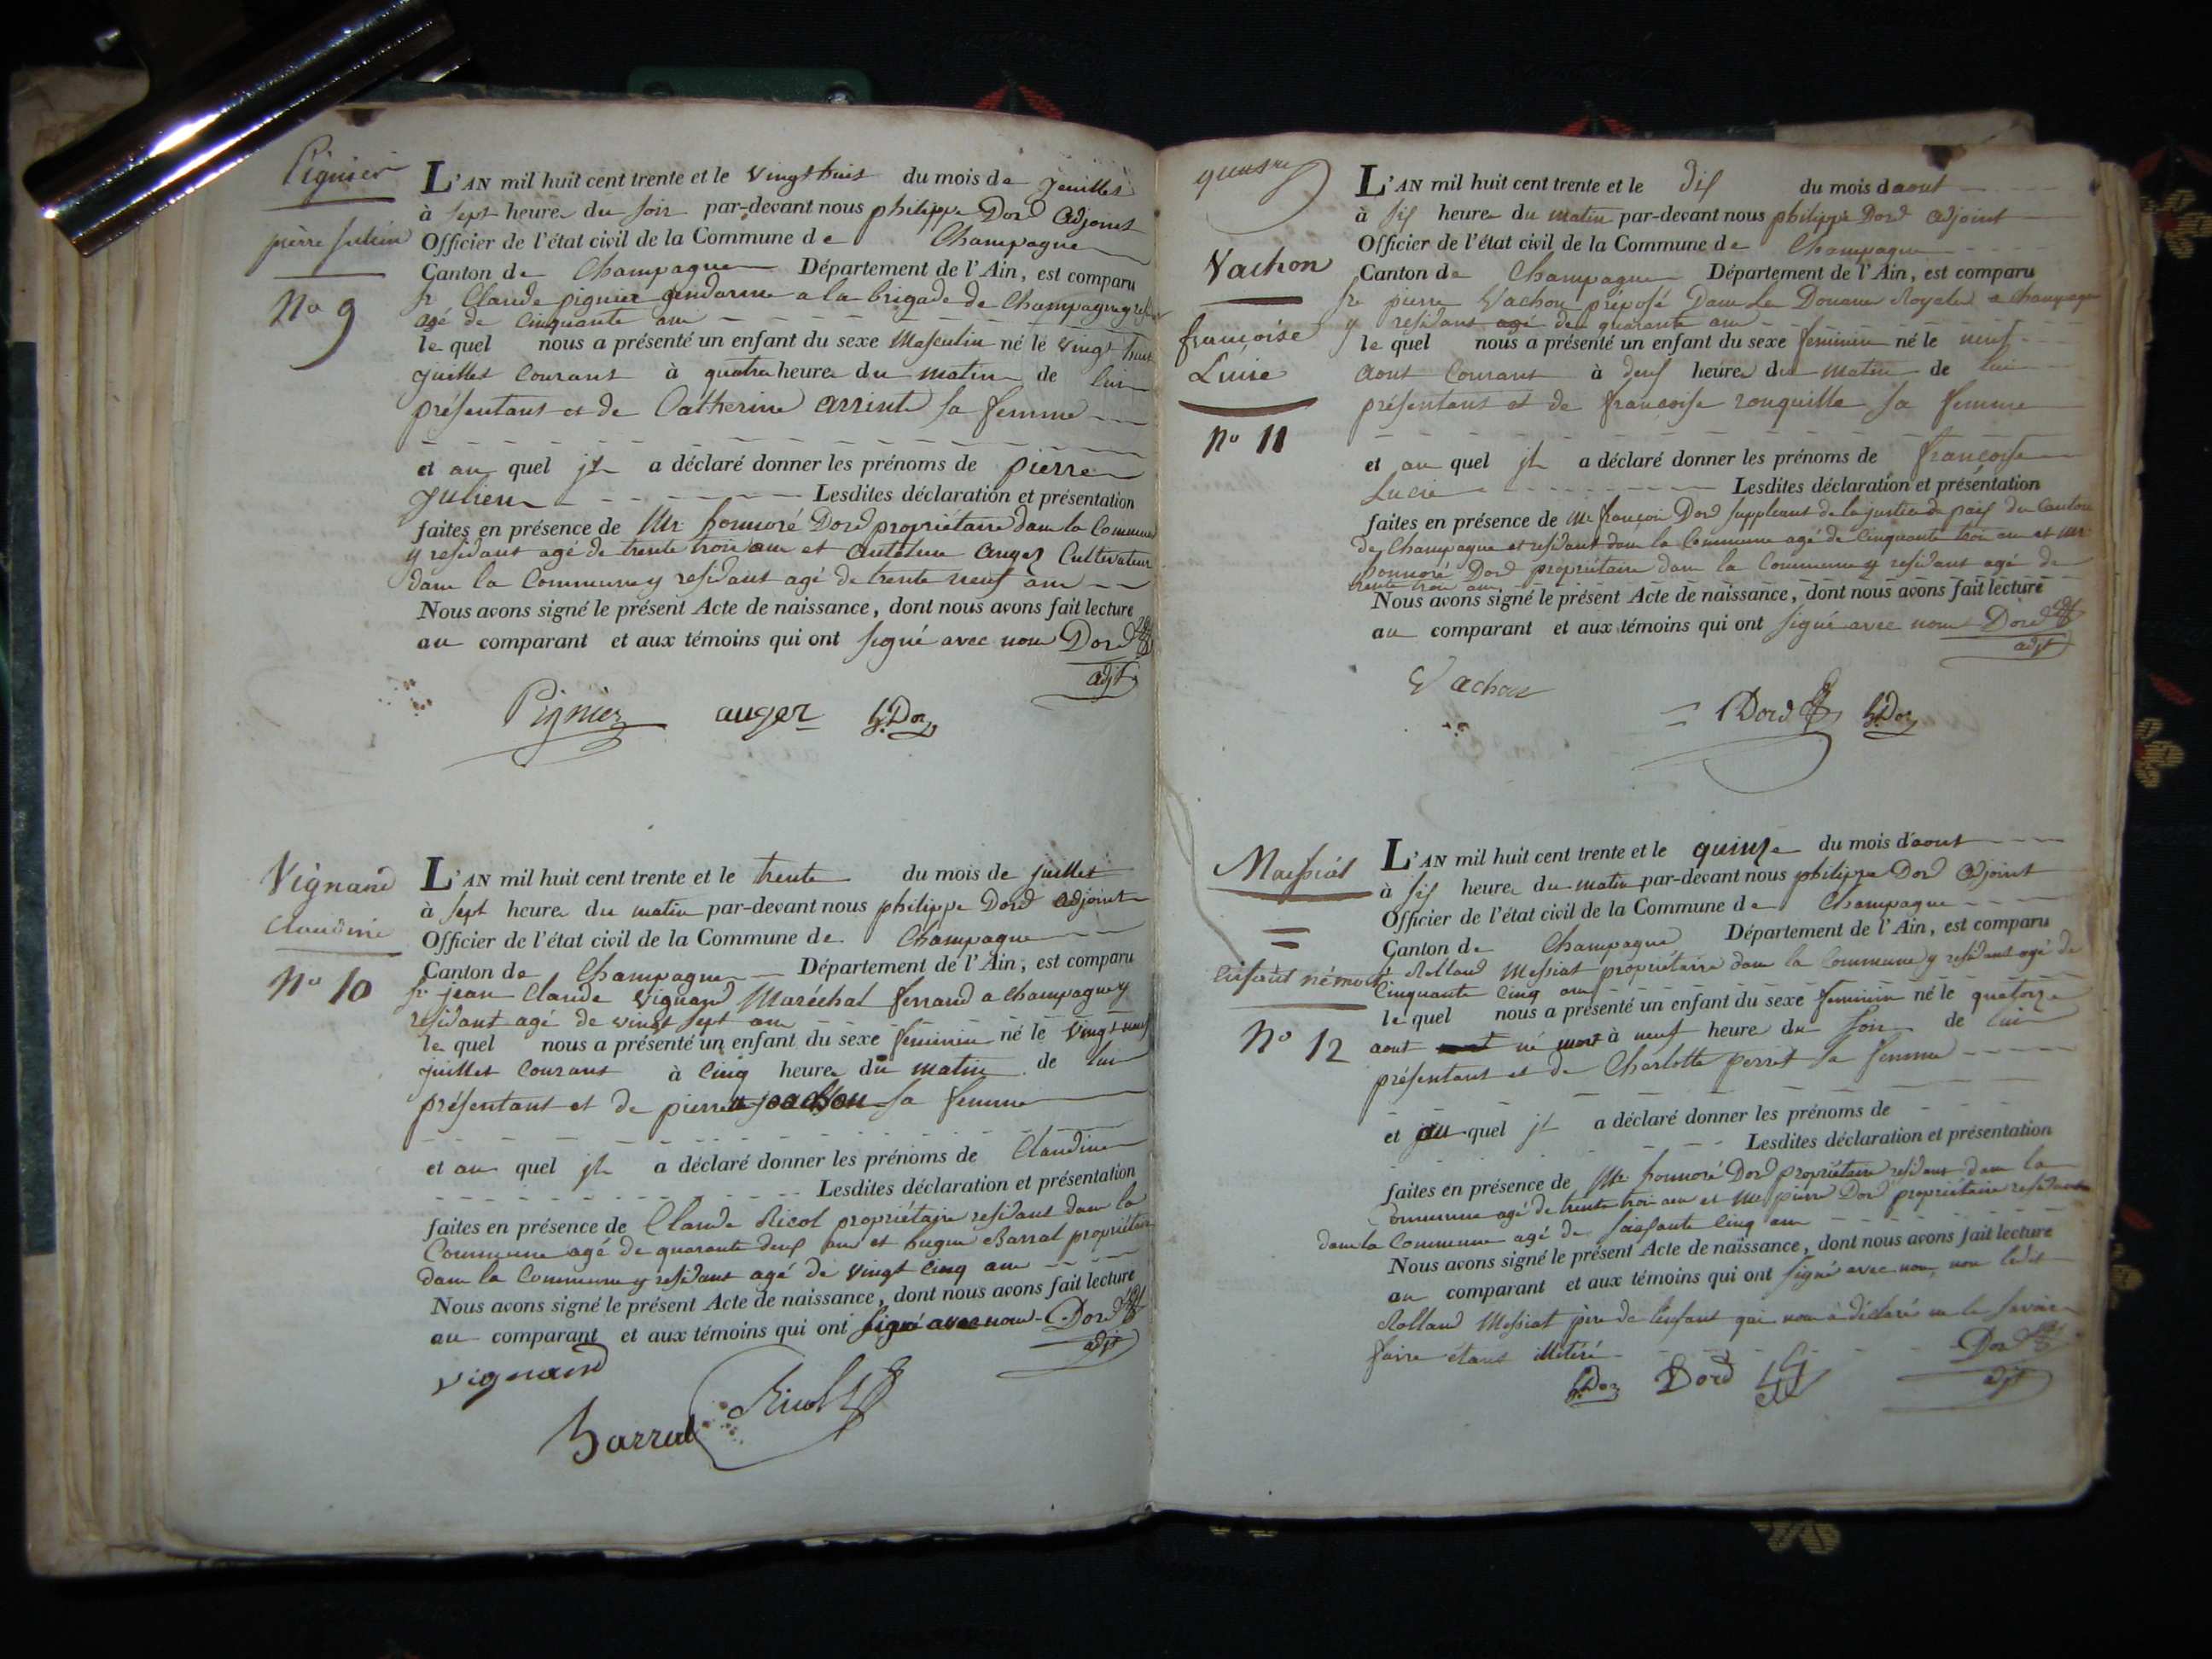 Pignier
pierre julien
No 9
L'AN mil huit cent trente et le vingt huit du mois de Jeuillet
à sept heures du soir par-devant nous philippe Dord adjoint
Officier de l'état civil de la Commune de Champagne
Canton de Champagne Département de l'Ain, est comparu
Sr Claude pignier gendarme a la brigade de Champagne y
agé de Cinquante ans
lequel nous a présenté un enfant du sexe Masculin né le vingt huit
Juillet Courant à quatre heures du matin de lui
présentant et de Catherine arrinte sa femme
et au quel il a déclaré donner les prénoms de pierre
Julien Lesdites déclaration et présentation
faites en présence de Mr honnoré Dord propriétaire dans la Commune
y residant agé de trente trois ans et antelme auger Cultivateur
dans la Commune y residant agé de trente neuf ans
Nous avons signé le présent Acte de naissance, dont nous avons fait lecture
au comparant et aux témoins qui ont signé avec nous Dord
adjt
Pignier auger h. Dor
Vignand
Claudine
No 10
L'AN mil huit cent trente et le trente du mois de juillet
à sept heures du matin par-devant nous philippe Dord adjoint
Officier de l'état civil de la Commune de Champagne
Canton de Champagne Département de l'Ain, est comparu
Sr jean Claude vignand Maréchal ferrand a Champagne y
residant agé de vingt sept ans
lequel nous a présenté un enfant du sexe feminin né le vingt neuf
juillet Courant à Cinq heures du matin de lui
présentant et de pierrette joachon sa femme
et au quel il a déclaré donner les prénoms de Claudine
Lesdites déclaration et présentation
faites en présence de Claude Ricol propriétaire residant dans la
Commune agé de quarante deux ans et hugue Barral propriétaire
dans la Commune y residant agé de vingt cinq ans
Nous avons signé le présent Acte de naissance, dont nous avons fait lecture
au comparant et aux témoins qui ont signé avec nous Dord
adjt
vignand
Barral Ricol
Vachon
françoise
Lucie
No 11
L'AN mil huit cent trente et le dix du mois daout
à six heures du matin par-devant nous philippe Dord adjoint
Officier de l'état civil de la Commune de Champagne
Canton de Champagne Département de l'Ain, est comparu
Sr pierre Vachon préposé Dans Les Douanes Royales a Champagne
y residant agé de quarante ans
lequel nous a présenté un enfant du sexe feminin né le neuf
aout Courant à deux heures du matin de lui
présentant et de francoise ronquille sa femme
et au quel il a déclaré donner les prénoms de francoise
Lucie Lesdites déclaration et présentation
faites en présence de Mr françois Dord suppleant de la justice de paix du Canton
de Champagne et residant dans la Commune agé de Cinquante trois ans et mr
honnoré Dord propriétaire dans la Commune y residant agé de
trente trois ans
Nous avons signé le présent Acte de naissance, dont nous avons fait lecture
au comparant et aux témoins qui ont signé avec nous Dord
adjt
Vachon
Dord h. Dor
Messiat
Enfant né mort
No 12
L'AN mil huit cent trente et le quinze du mois d'aout
à six heures du matin par-devant nous philippe Dord adjoint
Officier de l'état civil de la Commune de Champagne
Canton de Champagne Département de l'Ain, est comparu
Rolland Messiat propriétaire dans la Commune y residant agé de
Cinquante Cinq ans
lequel nous a présenté un enfant du sexe feminin né le quatorze
aout né mort à neuf heures du soir de lui
présentant et de Charlotte perret sa femme
et au quel il a déclaré donner les prénoms de
Lesdites déclaration et présentation
faites en présence de Mr honnoré Dord propriétaire residant dans la
Commune agé de trente trois ans et Mr pierre Dord propriétaire residant
dans la Commune agé de soixante Cinq ans
Nous avons signé le présent Acte de naissance, dont nous avons fait lecture
au comparant et aux témoins qui ont signé avec nous, non ledit
Rolland Messiat père de l'enfant qui nous a déclaré ne le savoir
faire étant illitéré Dord
adjt
h. Dor Dord